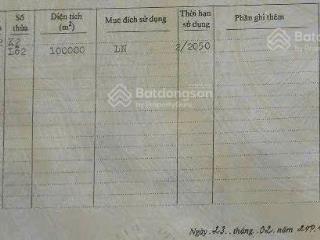 Số thửa Diện tích (m²) Mục đích sử dụng Thời hạn sử dụng Phần ghi thêm
L02 100000 LN 2/2050
Batdongsan
by PropertyGuru
Batdongsan
Ngày 23 tháng 02 năm